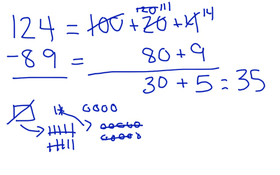 120 110 14
124 = 100 + 20 + 4
- 89 = 80 + 9
30 + 5 = 35